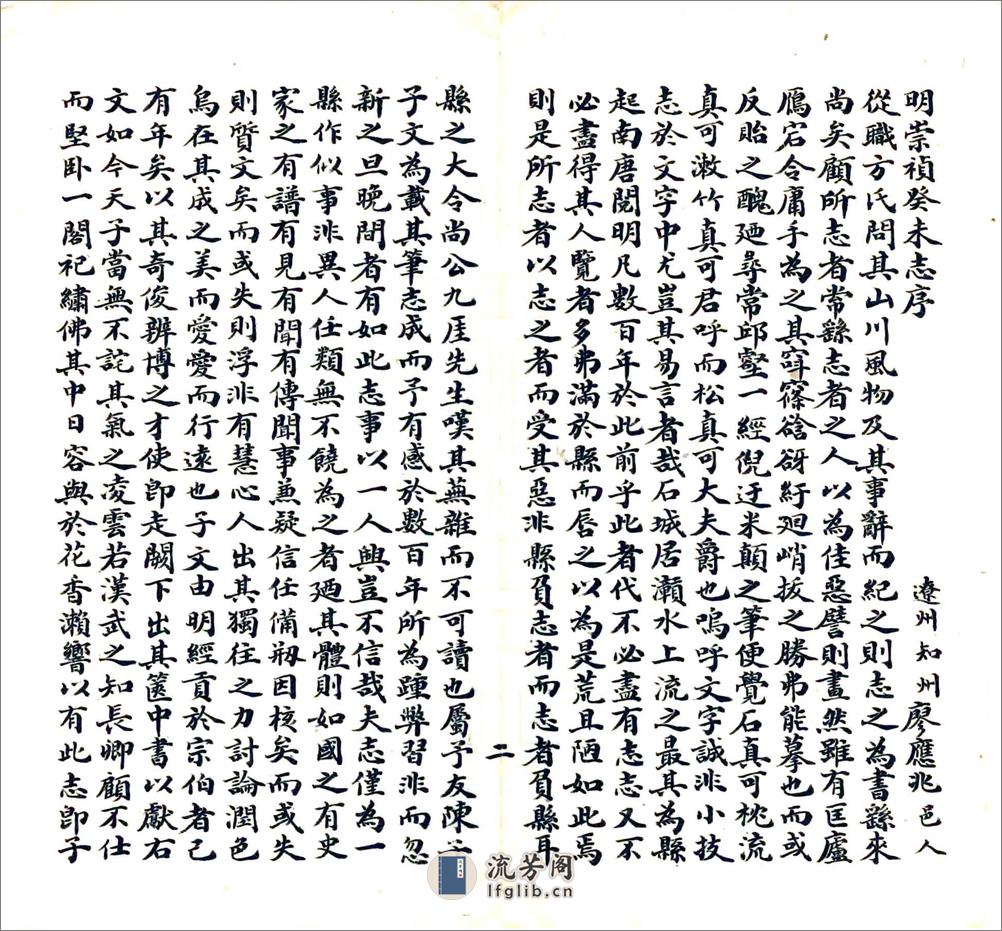 明崇禎癸未志序
遼州知州廖應兆邑人
從職方氏問其山川風物及其事辭而紀之則志之為書繇來
尚矣顧所志者常繇志者之人以為佳惡譬則畫然雖有匡廬
鴈宕令庸手為之其窅篠谽谺紆廻峭拔之勝弗能摹也而或
反貽之醜廼尋常邱壑一經倪迂米顛之筆便覺石真可枕流
真可漱竹真可君呼而松真可大夫爵也嗚呼文字誠非小技
志於文字中尤豈其易言者哉石城居瀨水上流之最其為縣
起南唐閱明凡數百年於此前乎此者代不必盡有志志又不
必盡得其人覽者多弗滿於縣而唇之以為是荒且陋如此焉
則是所志者以志之者而受其惡非縣負志者而志者負縣耳
二
縣之大令尚公九厓先生嘆其蕪雜而不可讀也屬予友陳
子文為載其筆志成而予有感於數百年所為踵弊習非而忽
新之旦晚間者有如此志事以一人興豈不信哉夫志僅為一
縣作似事非異人任類無不饒為之者廼其體則如國之有史
家之有譜有見有聞有傳聞事兼疑信任備剏因核矣而或失
則質文矣而或失則浮非有慧心人出其獨往之力討論潤色
烏在其成之美而愛愛而行遠也子文由明經貢於宗伯者己
有年矣以其奇俊辨博之才使即走闕下出其篋中書以獻右
文如今天子當無不詫其氣之凌雲若漢武之知長卿顧不仕
而堅卧一閣祀繡佛其中日容與於花香瀨響以有此志即子
流芳阁
lfglib.cn